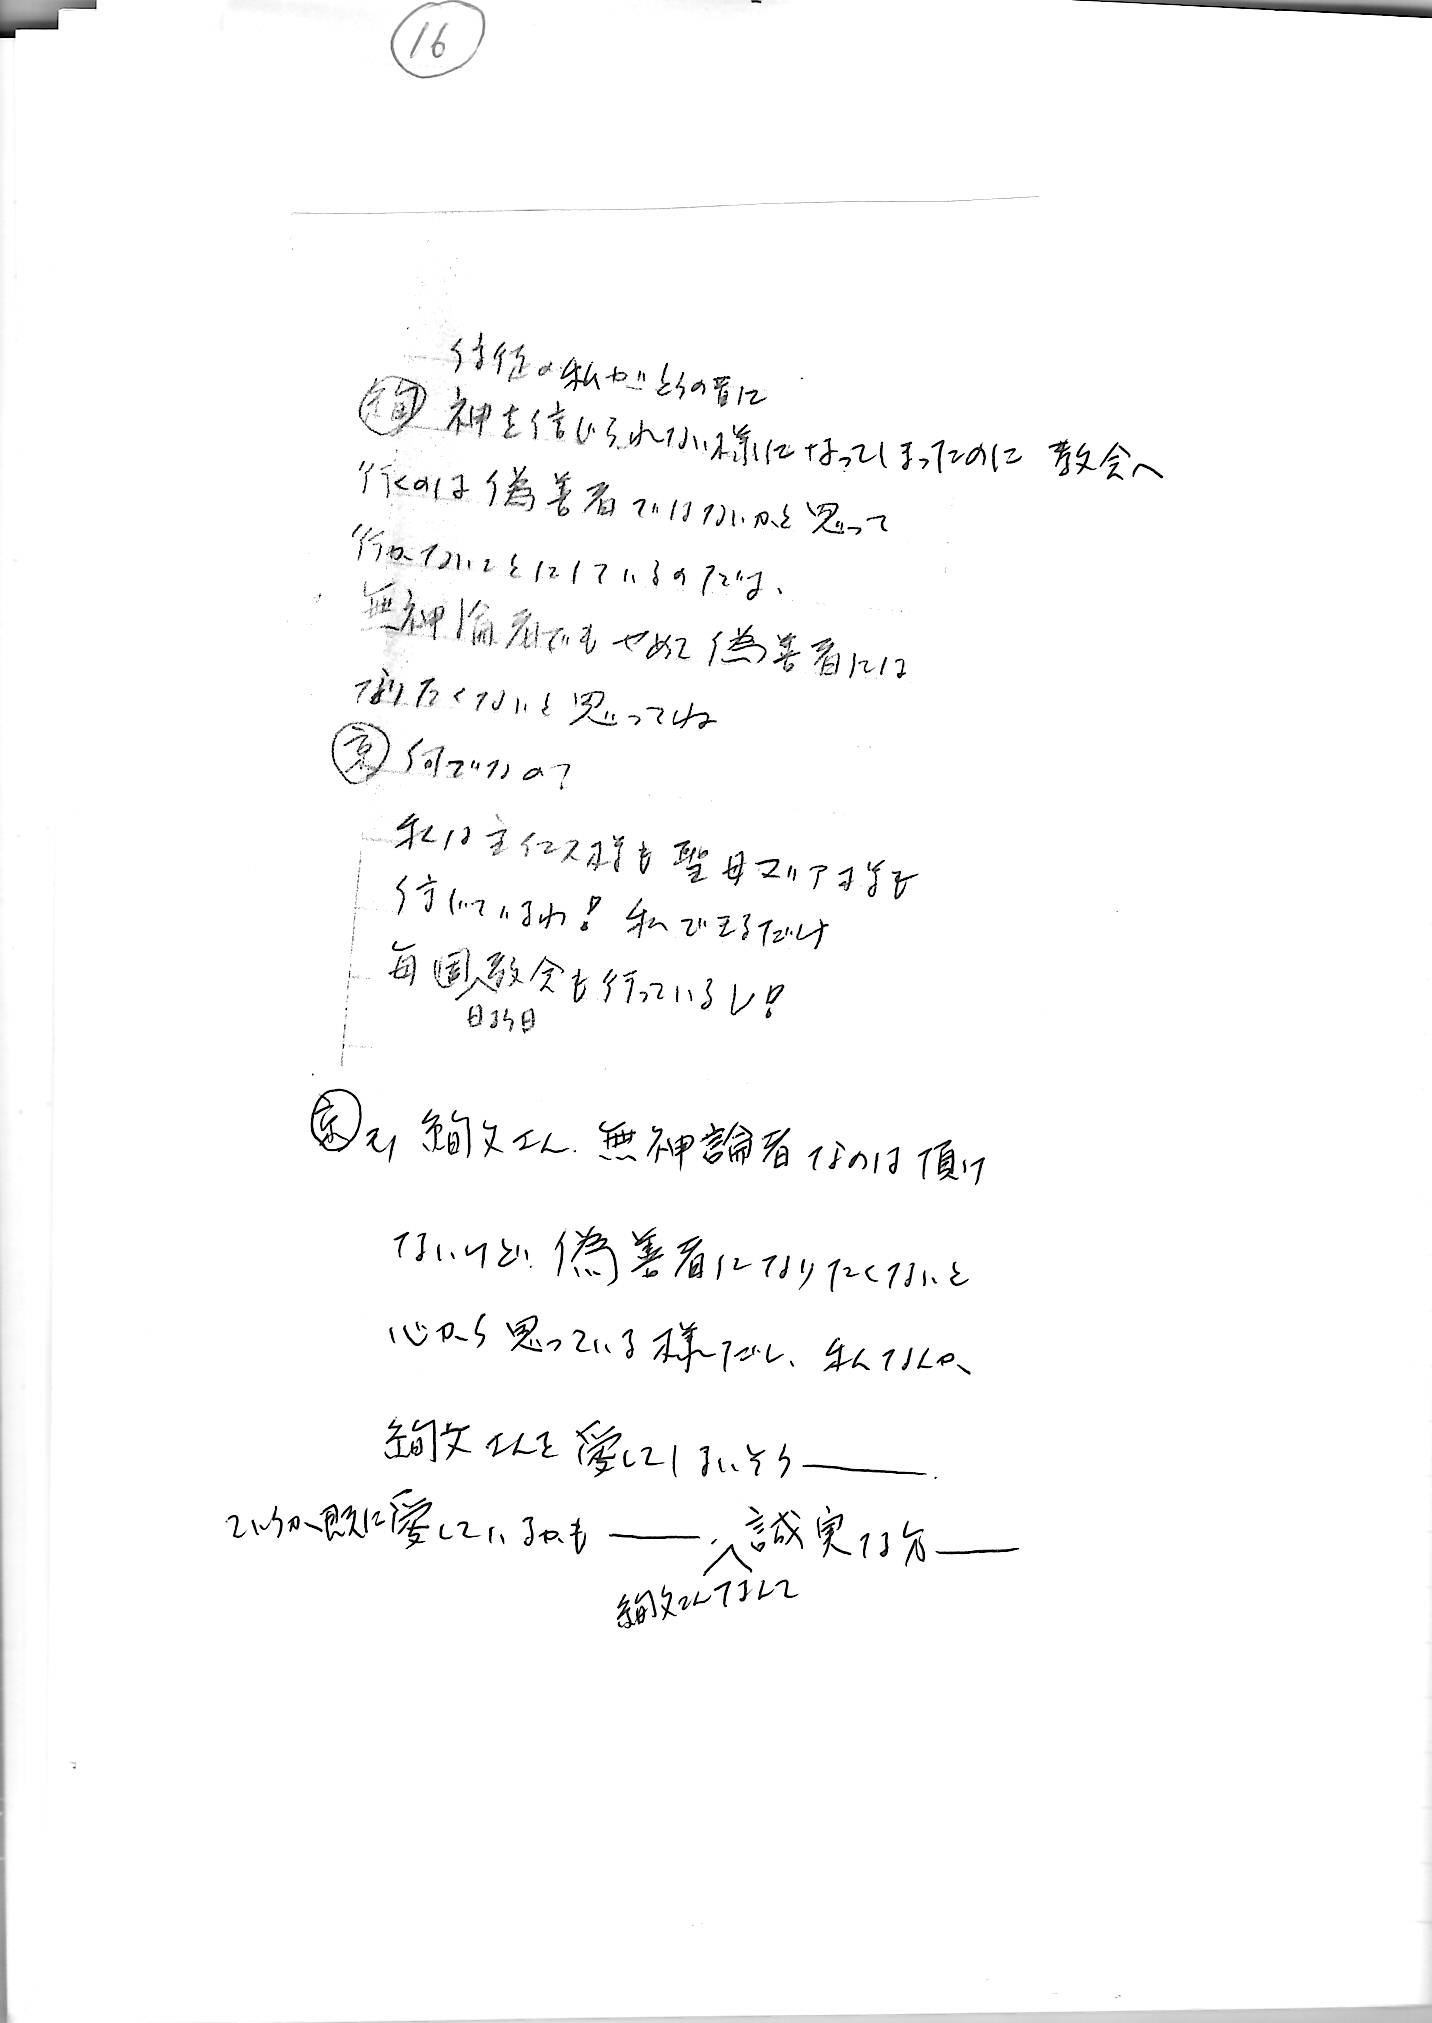 16
信仰の私がとうの昔に
絢 神を信じられない様になってしまったのに 教会へ
行くのは偽善者ではないかと思って
行かないことにしているのだよ、
無神論者でもせめて偽善者には
なりたくないと思ってね
京 何でなの?
私は主イエス様も聖母マリア様も
信じているわ! 私できるだけ
毎週教会も行っているし!
日よう日
京 でも 絢文さん、無神論者なのは頂け
ないけど、偽善者になりたくないと
心から思っている様だし、私なんか、
絢文さんを愛してしまいそう――.
ていうか、既に愛しているかも――. 誠実な方――
絢文さんてなんて